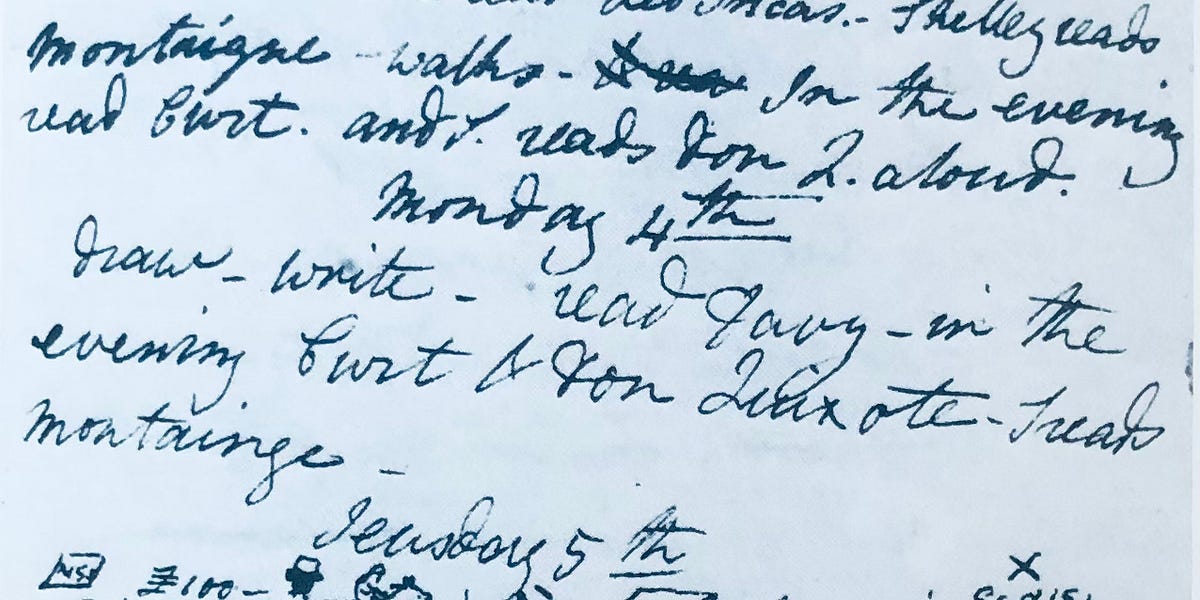 des Incas. - Shelley reads
Montaigne - walks - In the evening
read Curt. and S. reads Don Q. aloud.
Monday 4th
Draw - write - read Davy - in the
evening Curt & Don Quixote - S reads
Montainge -
Teusday 5th
£100 -